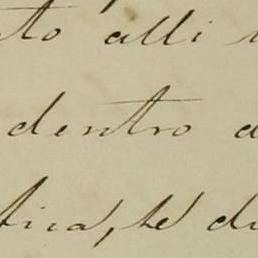 to alli
dentro d
tica, te di